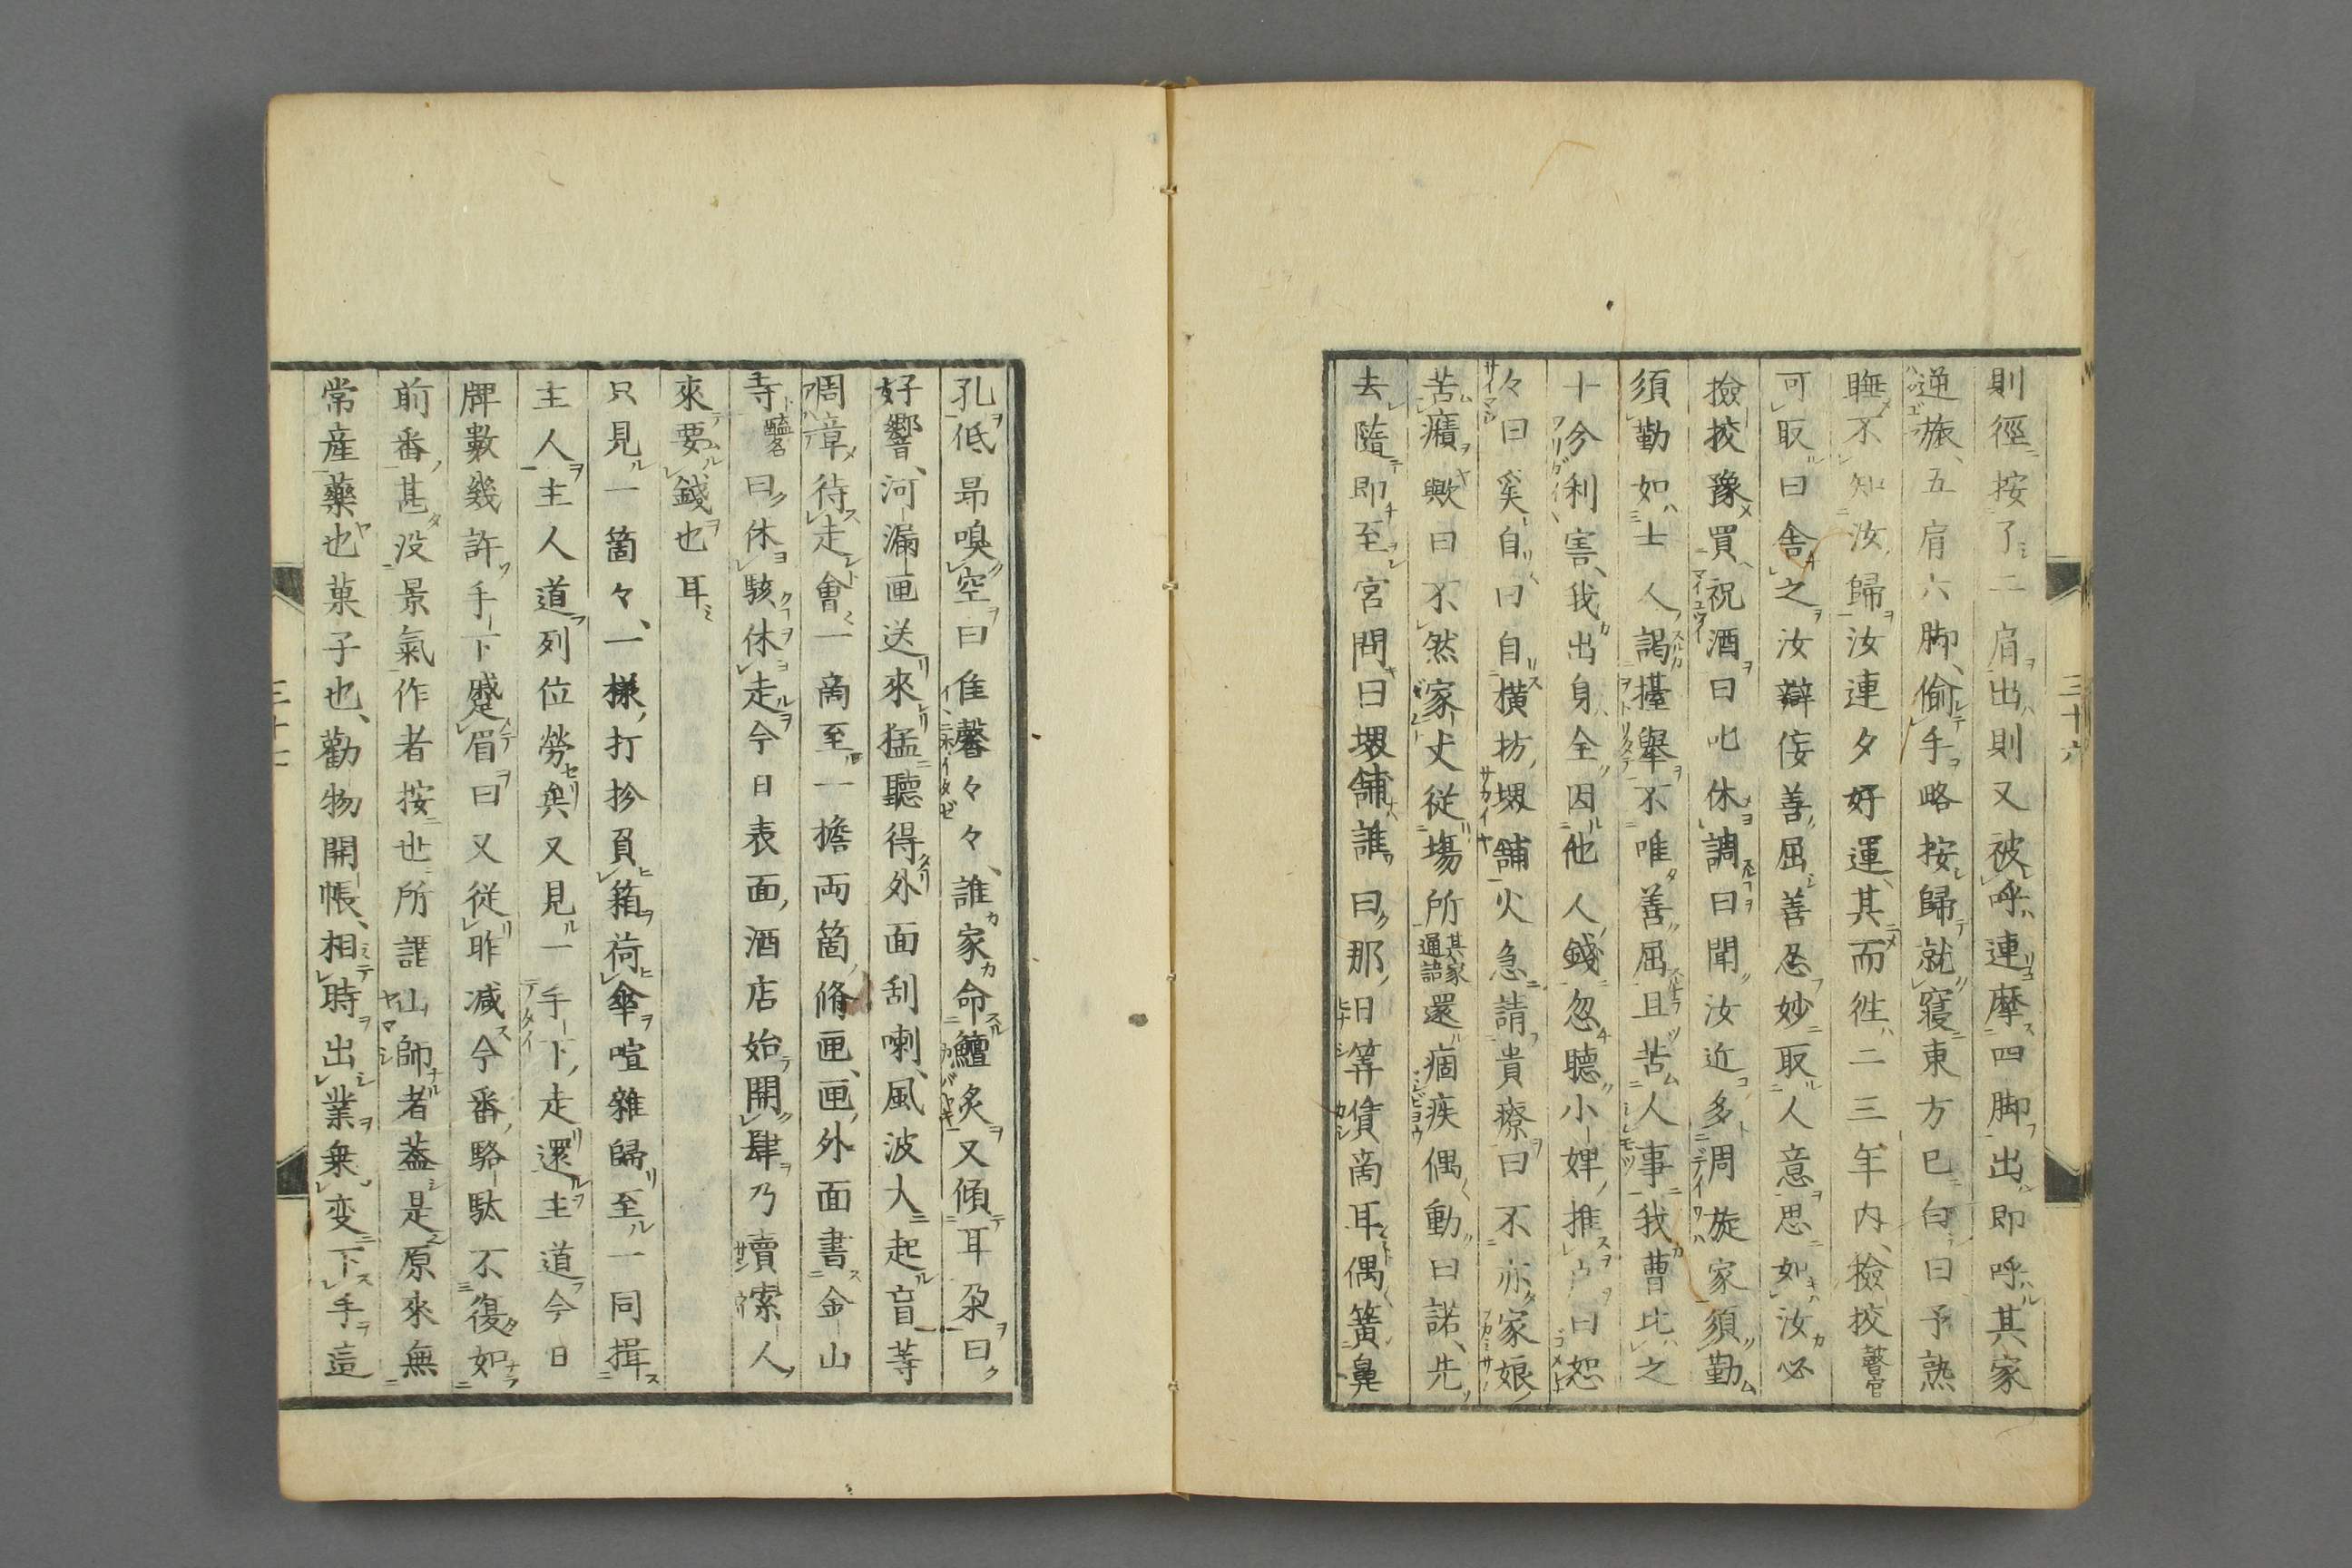 則徑按了二肩出則又被呼連摩四脚出即呼其家
逆旅五肩六脚、偷手略按歸就寢東方已白曰予熟
睡不知汝歸汝連夕好運、其而徃、二三年內、撿挍瞽官
可取曰舍之汝辯侫善屈善忍妙取人意思如汝必
撿挍豫買祝酒曰叱休調曰聞汝近多周旋家須勤
須勤如士人謁擡舉不唯善屈且苦人事我曹比之
十分利害、我出身全因他人錢忽聽小婢推戶曰恕
々曰奚自曰自横坊堺舖火急請貴療曰不亦家娘
苦癪歟曰不然家丈從塲所其家通語還痼疾偶動曰諾、先
去隨即至宮問曰堺舖誰曰那日筭償啇耳偶簧鼻
三十六
孔低昻嗅空曰隹馨々々、誰家命鱣炙又傾耳朶曰
好響、河漏匣送來猛聽得外面刮喇、風波大起盲等
周章待走會一啇至一擔両箇脩匣、匣外面書金山
寺醢名曰休駭休走今日表面酒店始開肆乃賣索人
來要錢也耳
只見一箇々、一樣打扮負箱荷傘喧雜歸至一同揖
主人主人道列位勞矣又見一手手下走還主道今日
牌數幾許手下蹙眉曰又從昨减今番駱駄不復如
前番甚没景氣作者按世所謂山師者葢是原來無
常産藥也菓子也、勸物開帳、相時出業乗変下手這